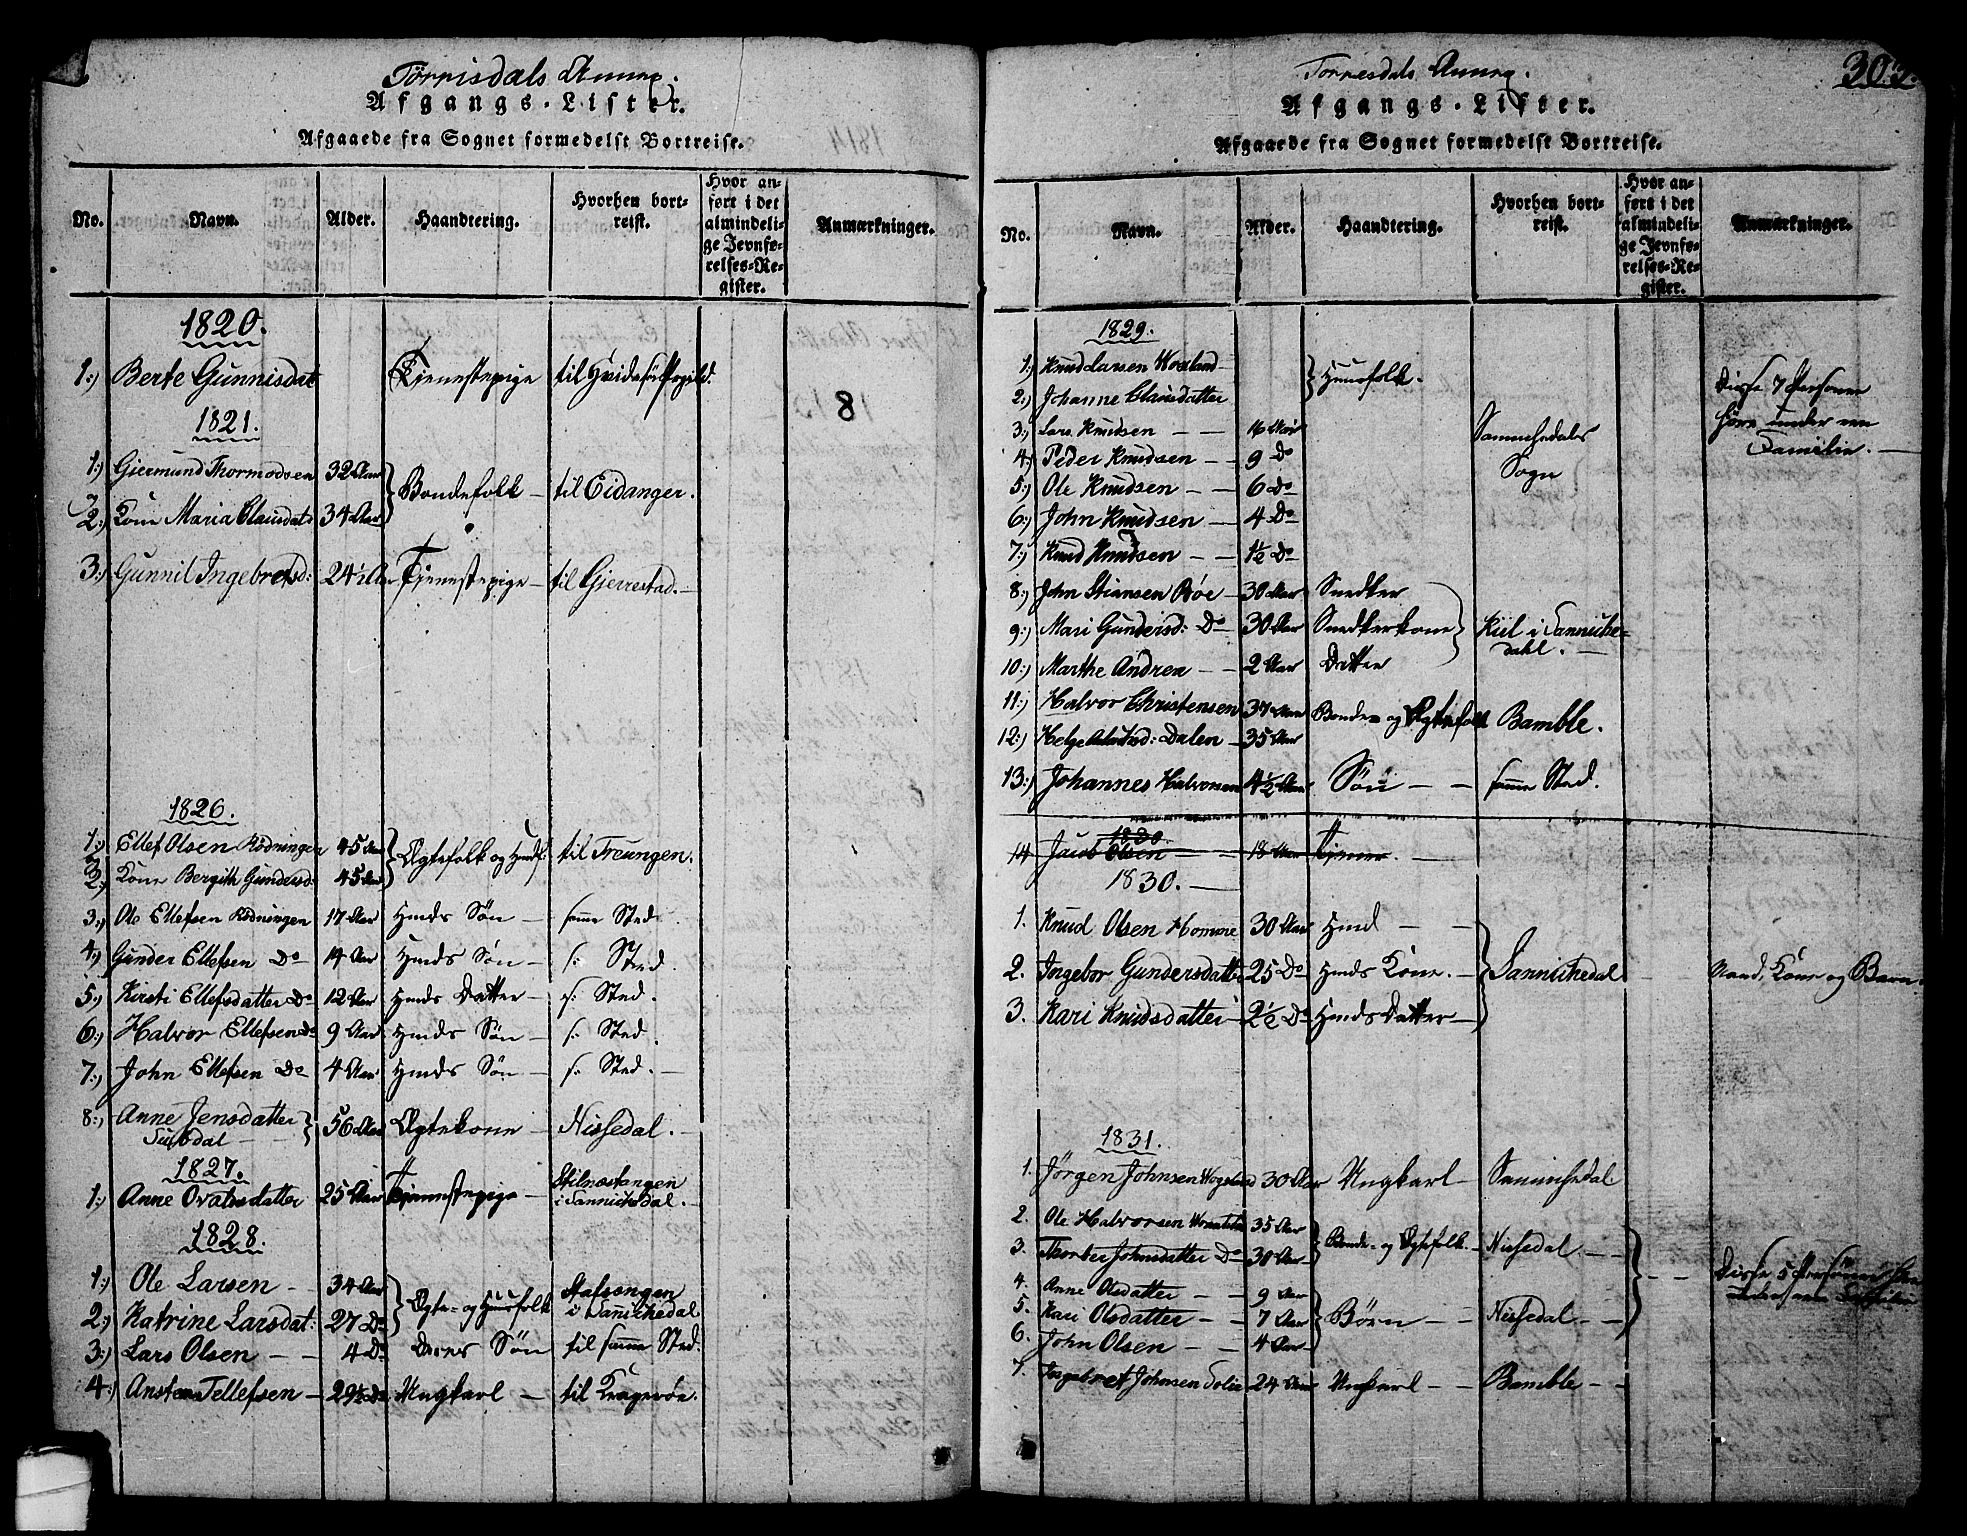 Törrisdals Annex.
Afgangs-Lister.
Afgaaede fra Sognet formedelst Bortreise.
No. Navn. Alder. Haandtering. Hvorhen bortreist. Hvor anført i det almindelige Jevnførelses-Register. Anmærkninger.
1820.
1.) Berte Gunnisdat Tjenestepige
1821.
1.) Giermund Thormodsen 32 Aar Bondefolk – til Eidanger.
2.) Kone Maria Clausdat: 34 Aar
3.) Gunnil Ingebretsd: 24½ Aar Tjenestepige – til Gjerrestad. –
1826.
1.) Ellef Olsen Rödningen 45 Aar Ægtefolk og til Treungen.
2.) Kone Bergith Gundersd: 45 Aar
3.) Ole Ellefsen Rödningen 17 Aar Huusds Sön – samme Sted
4.) Gunder Ellefsen Do 14 Aar Sön – s: Sted
5.) Kirsti Ellefsdatter Do 12 Aar Datter – s: Sted.
6.) Halvor Ellefsen Do 9 Aar Sön – s: Sted.
7.) John Ellefsen Do 4 Aar Sön – s: Sted. –
8.) Anne Jensdatter 56 Aar Ægtekone – Nissedal. –
1827.
1.) Anne Ovalsdatter 25 Aar Tjenestepige – Stilnæstangen
i Sannichedal. –
1828.
1.) Ole Larsen – 34 Aar Ægte- og Huusfolk
i Sannichedal
2.) Katrine Larsdat: 27 Do
3.) Lars Olsen – – 4 Do Deres Sön til samme Sted.
4.) Ansten Tellefsen – 29½ Do Ungkarl – til Kragerøe.
Torresdals Annex.
303.
Afgangs-Lister.
Afgaaede fra Sognet formedelst Bortreise.
No. Navn. Alder. Haandtering. Hvorhen bortreist. Hvor anført i det almindelige Jevnførelses-Register. Anmærkninger.
1829.
1.) Knud Larsen Huusfolk. Disse 7 Personer
2.) Johanne Clausdatter høre under een
3.) Lars Knudsen – – 16 Aar Sannichedals Familie. –
4.) Peder Knudsen – – 9 Do Sogn
5.) Ole Knudsen – – 6 Do
6.) John Knudsen – 4 Do
7.) Knud Knudsen – – 1½ Do
8.) John Stiansen Böe – 30 Aar Snedker
9.) Mari Gundersd: Do 30 Aar Snedkerkone Kiil i Sanniche-
dahl. –
10.) Marthe Andrea – – 2 Aar Datter
11.) Halvor Christensen 37 Aar Bonde- og Ægtefolk Bamble.
12.) Helge Dalen – 35 Aar
13.) Johannes Halvorsen 4½ Aar Sön – – samme Sted.
1830.
14 Jacob Olsen – 18 Aar Tjener. –
1830. –
1. Knud Olsen Homme 30 Aar – –
2. Ingebor Gundersdatter 25 Do Kone. – Sannichedal – Mand, Kone og Barn.
3. Kari Knudsdatter 2½ Do Datter –
1831.
1. Jörgen Johnsen 30 Aar Ungkarl – Sannichedal
2. Ole Halvorsen 35 Aar Bonde- og Ægtefolk. – Nissedal – –
3. Thorber Johnsdatter Do 30 Aar
4. Anne Olsdatter – – 9 Aar Disse 5 Personer
5. Kari Olsdatter – – 7 Aar Börn – – Nissedal – –
6. John Olsen – – 4 Aar
7. Ingebret Johnsen 24 Aar Ungkarl – – Bamble – –